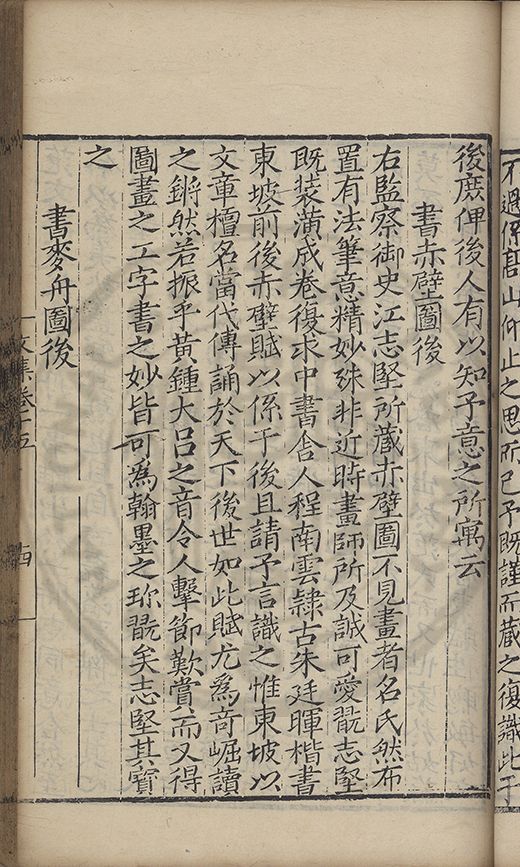 不過係髙山仰止之思所已予既謹而藏之復識此于
後庻俾後人有以知予意之所寓云
書赤壁圖後
右監察御史江志堅所藏赤壁圖不見畫者名氏然布
置有法筆意精妙殊非近時畫師所及誠可愛翫志堅
既装潢成卷復求中書舎人程南雲隷古朱廷暉楷書
東坡前後赤壁賦以係于後且請予言識之惟東坡以
文章檀名當代傳誦於天下後世如此賦尤爲竒崛讀
之鏘然若振乎黄鍾大吕之音令人擊節歎賞而又得
圖畫之工字書之妙皆可爲翰墨之珎翫矣志堅其寳
之
書麥舟圖後
文集卷十五
四